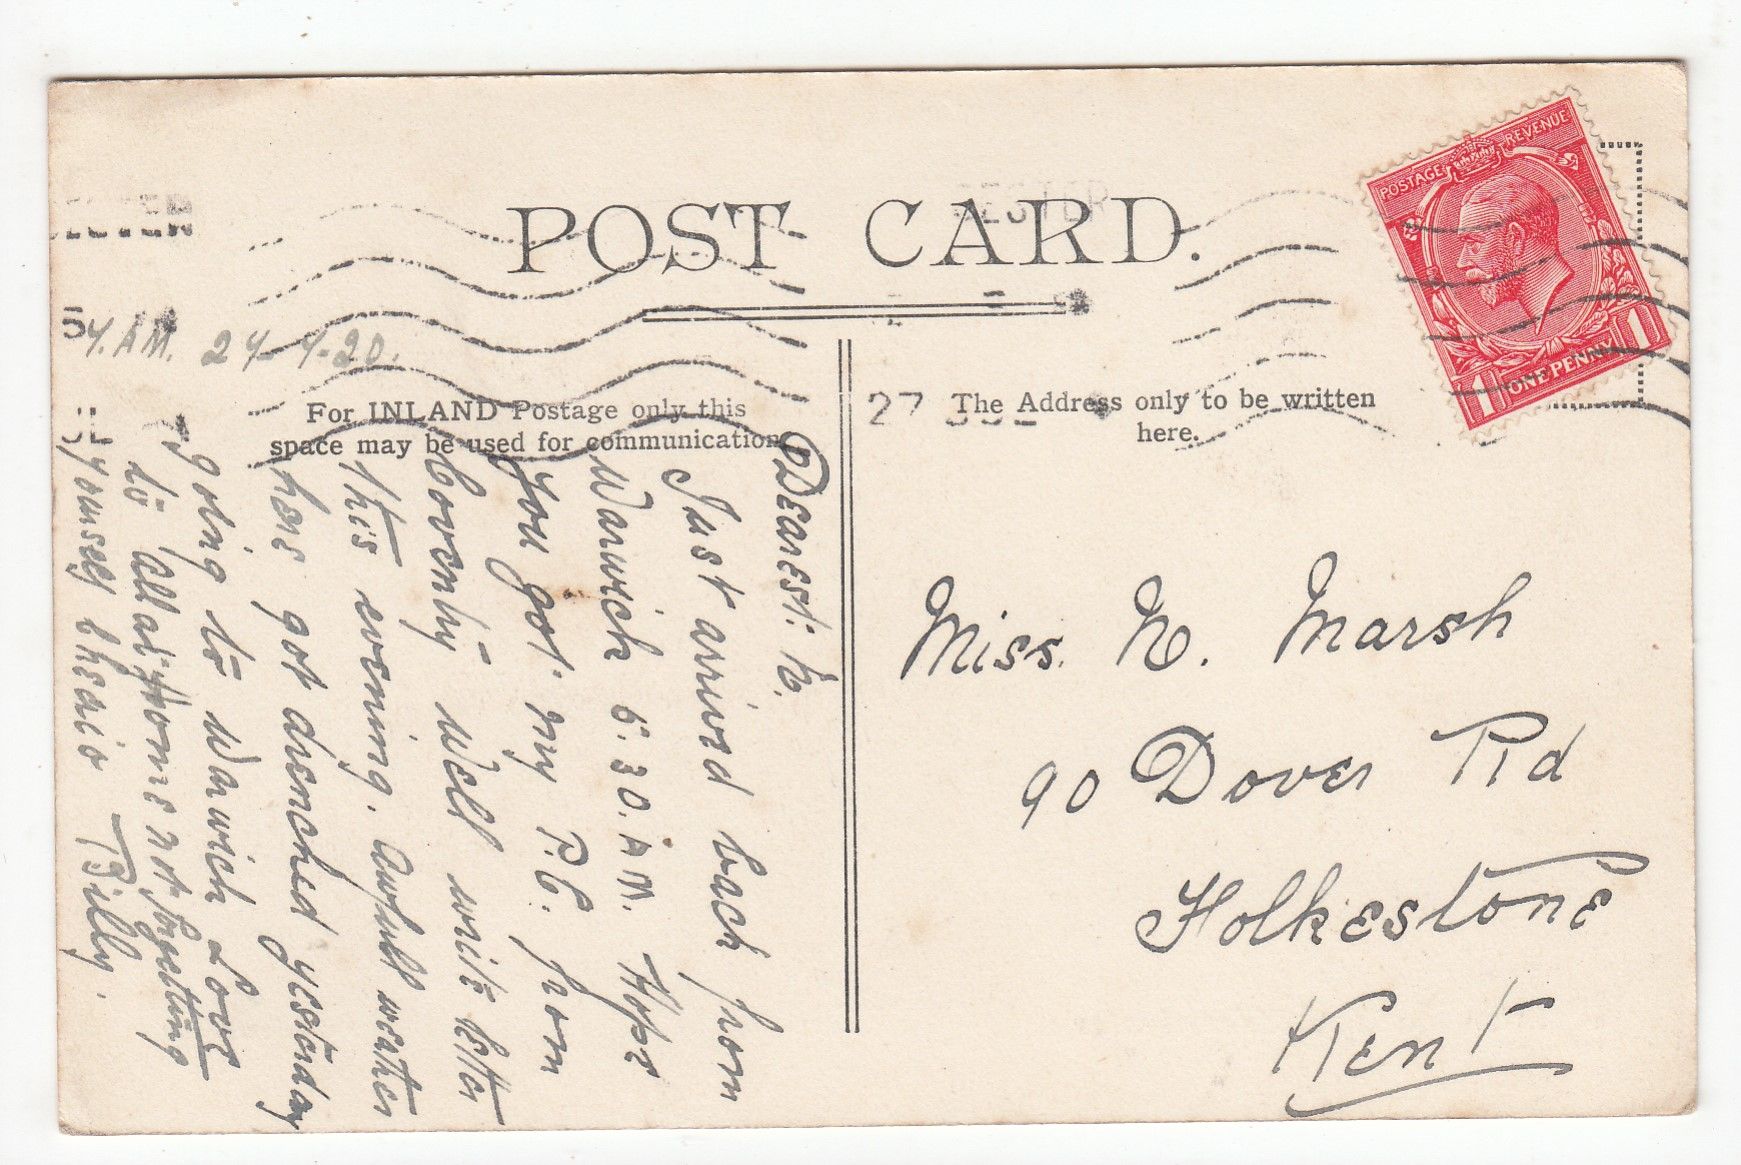 POST CARD.
POSTAGE REVENUE
1 ONE PENNY 1
For INLAND Postage only this
space may be used for communication
The Address only to be written
here.
27 JUL
4. AM. 27-7-20.
Dearest. N.
Just arrived back from
Warwick 5.30. AM. Hope
you got my P.C. from
Coventry well write letter
this evening. Awfull weather
here got drenched yesterday
going to Warwick Love
to all at Home not forgetting
yourself Cheerio Billy.
Miss. N. Marsh
90 Dover Rd
Folkestone
Kent